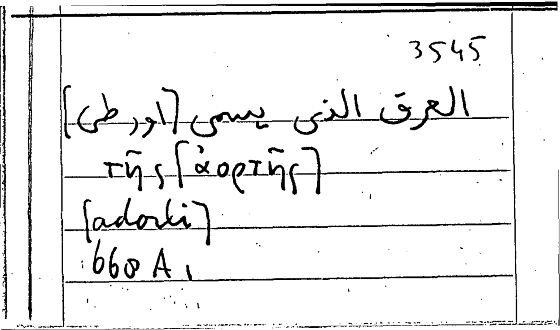 3545
العرق الذى يسمى [اورطى]
τῆς [ἀορτῆς]
[adorti]
668 A 1